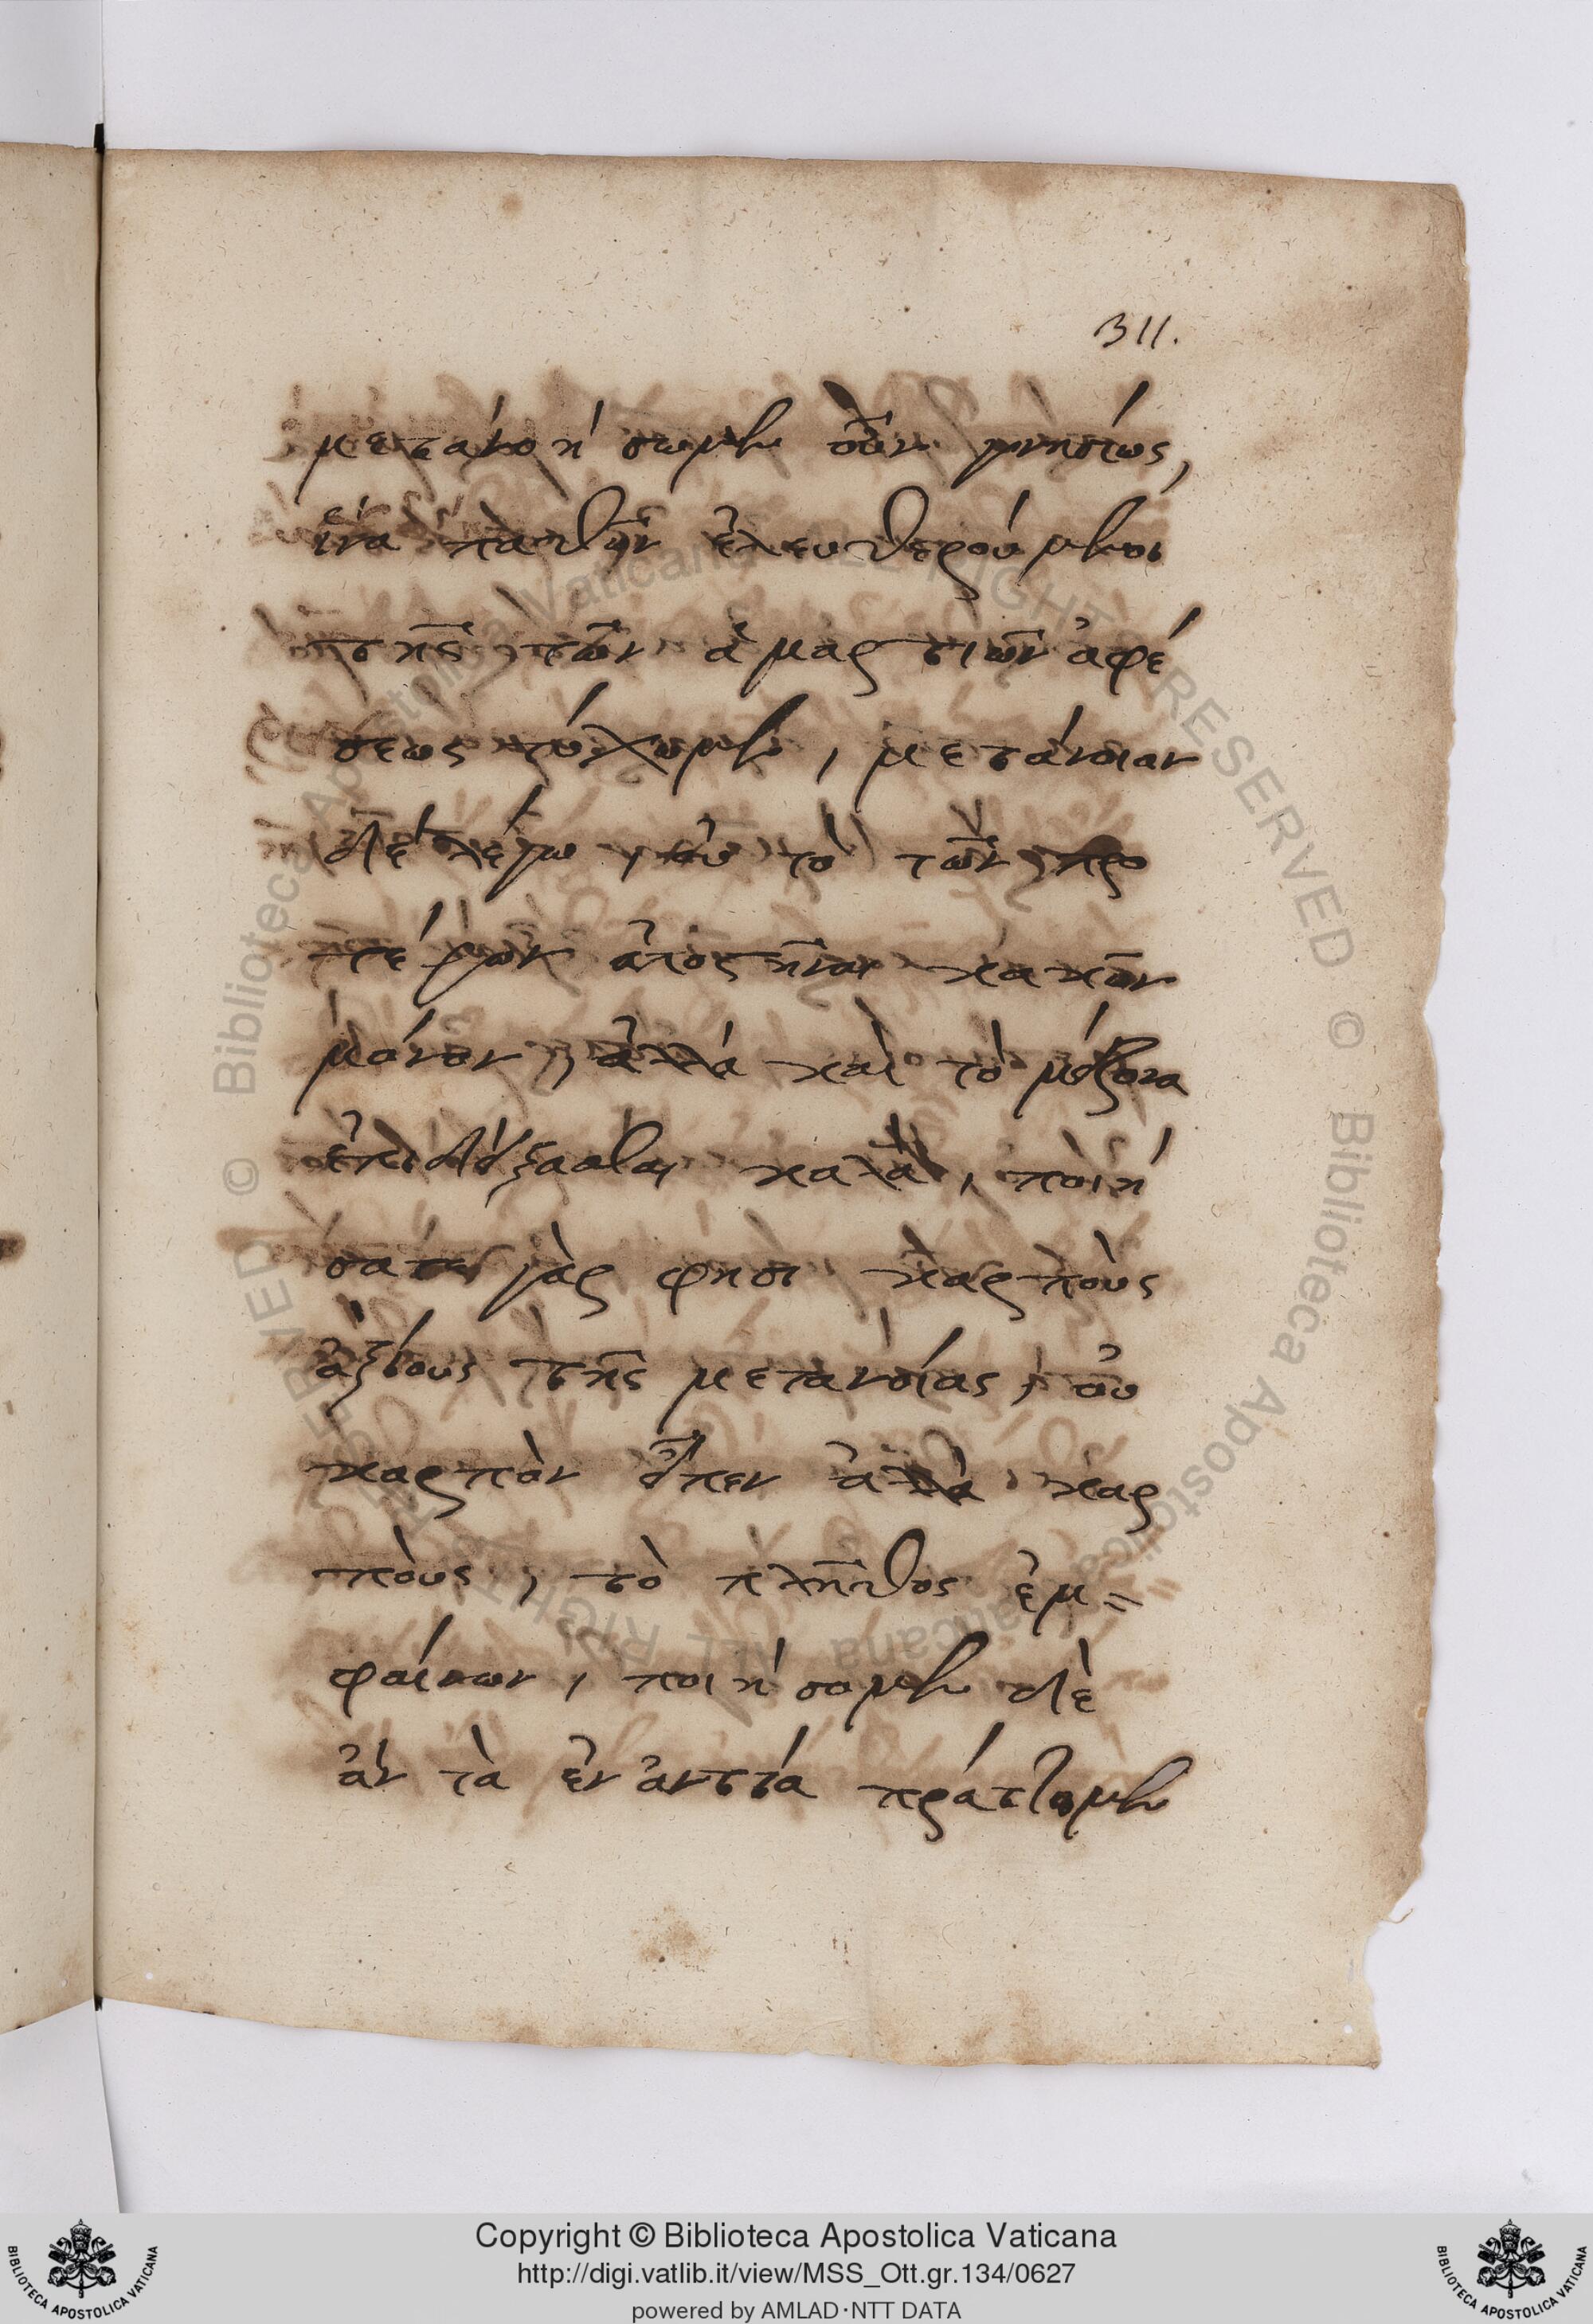 311.
μετανοήσωμεν οὖν γνησίως,
ἵνα παθῶν ἐλευθερούμενοι
τῆς τῶν ἁμαρτιῶν ἀφέ
σεως τύχωμεν, μετάνοιαν
δὲ λέγω, οὐ τὸ τῶν προ
τέρων ἀποστῆναι κακῶν
μόνον, ἀλλὰ καὶ τὸ μείζονα
ἐπιδείξασθαι καλά, ποιή
σατε γὰρ φησὶ καρποὺς
ἀξίους τῆς μετανοίας, οὐ
καρπὸν εἶπεν ἀλλὰ καρ
ποὺς, τὸ πλῆθος ἐμ=
φαίνων, ποιήσομεν δὲ
ἂν τὰ ἐναντία πράττομεν
Copyright © Biblioteca Apostolica Vaticana
http://digi.vatlib.it/view/MSS_Ott.gr.134/0627
powered by AMLAD·NTT DATA
BIBLIOTECA APOSTOLICA VATICANA
BIBLIOTECA APOSTOLICA VATICANA
© Biblioteca Apostolica Vaticana ALL RIGHTS RESERVED © Biblioteca Apostolica Vaticana ALL RIGHTS RESERVED